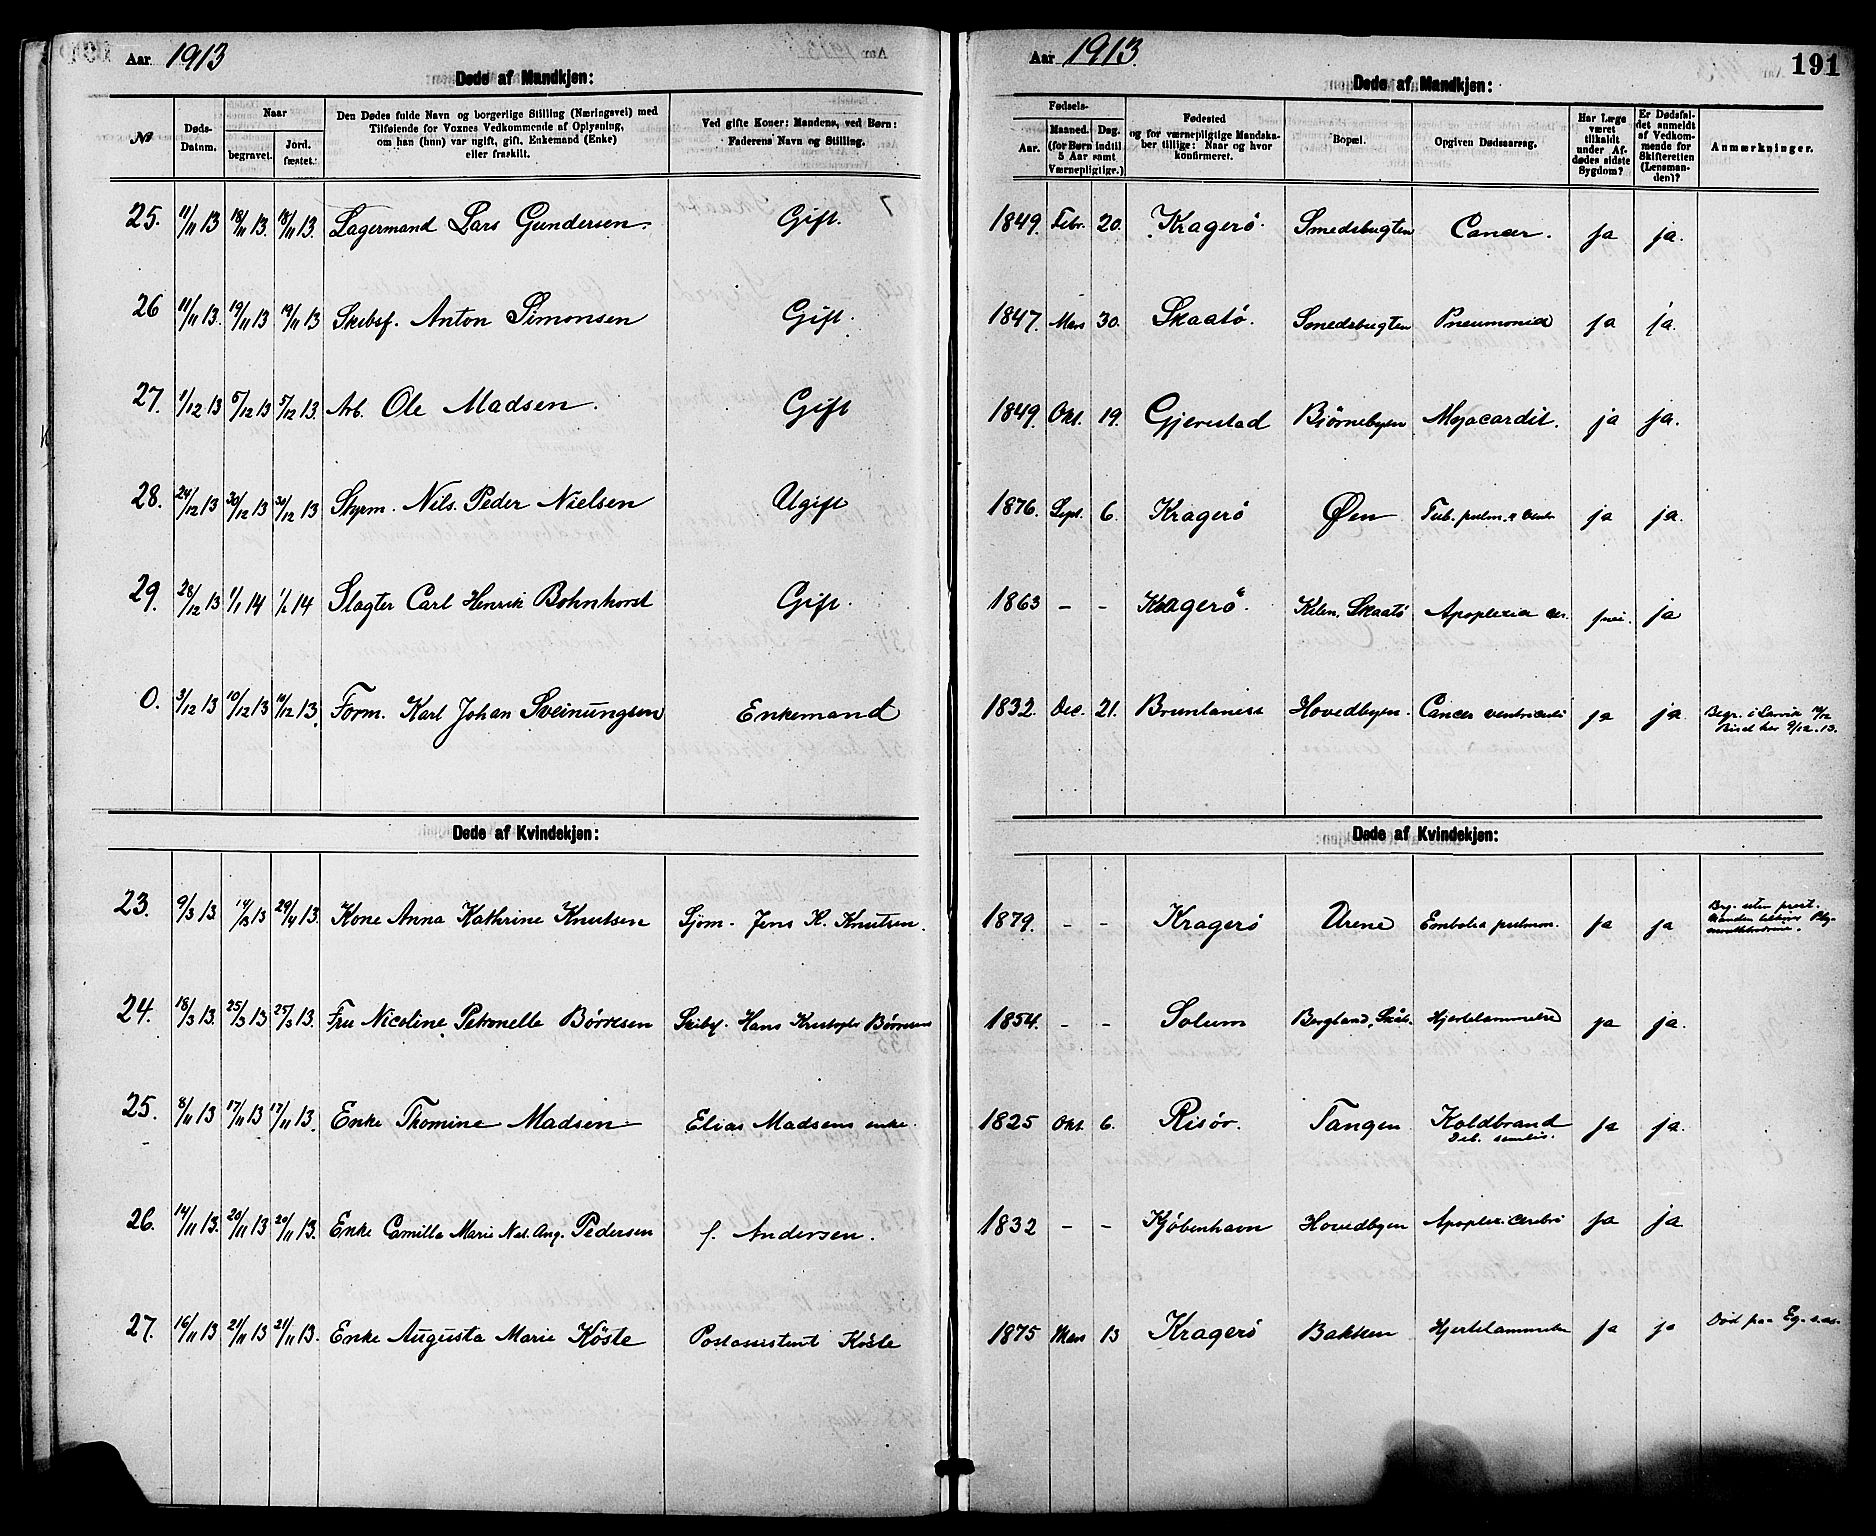 Aar 1913
Døde af Mandkjøn:
№
Døds-Datum.
Naar
begravet.
Jord. fæstet.
Den Dødes fulde Navn og borgerlige Stilling (Næringsvei) med
Tilføiende for Voxnes Vedkommende af Oplysning,
om han (hun) var ugift, gift, Enkemand (Enke)
eller fraskilt.
Ved gifte Koner: Mandens, ved Børn:
Faderens Navn og Stilling.
25. 11/11 13 18/11 13. 18/11 13. Lagermand Lars Gundersen. Gift.
26 11/11 13. 19/11 13 19/11 13 Skibsf. Anton Simonsen Gift.
27. 1/12 13 5/12 13 5/12 13. Arb. Ole Madsen. Gift
28. 24/12 13 30/12 13 30/12 13 Styrm. Nils. Peder Nielsen Ugift
29. 28/12 13 1/1 14 1/1 14 Slagter Carl Henrik Bohnhorst Gift.
0. 3/12 13 10/12 13 10/12 13. Form. Karl Johan Sveinungsen Enkemand
Døde af Kvindekjøn:
23. 9/3 13 14/3 13 29/4 13. Kone Anna Kathrine Knutsen Sjøm. Jens K. Knutsen.
24. 18/3 13. 25/3 13 25/3 13. Fru Nicoline Petronelle Børresen Skibsf. Hans Kristopher Børresens
25. 8/11 13 17/11 13 17/11 13. Enke Thomine Madsen Elias Madsens enke.
26. 14/11 13. 20/11 13 20/11 13. Enke Camilla Marie Nat. Aug. Pedersen f. Andersen.
27. 16/11 13 21/11 13 21/11 13. Enke Augusta Marie Köste Postassistent Köste
Aar 1913.
191
Døde af Mandkjøn:
Fødsels-
Aar.
Maaned. Dag.
(for Børn indtil
5 Aar samt
Værnepligtige.)
Fødested
og for værnepligtige Mandska-
ber tillige: Naar og hvor
konfirmeret.
Bopæl.
Opgiven Dødsaarsag.
Har Læge
været
tilkaldt
under Af-
dødes sidste
Sygdom?
Er Dødsfal-
det anmeldt
af Vedkom-
mende for
Skifteretten
(Lensman-
den)?
Anmærkninger.
1849. Febr. 20. Kragerö. Smedsbugten Cancer. ja ja.
1847. Mars 30. Skaatö. Smedsbugten Pneumonia ja ja.
1849. Okt. 19. Gjerestad Biörnebyen Myocardit. ja ja.
1876. Sept. 6. Kragerö Øen Tub. pulm. ja ja.
1863 - - Kragerö. Kilen, Skaatö Apoplexia cer. ja
1832. Dec. 21. Brunlanæs Hovedbyen. Cancer ventriculi ja ja Begr. i Larvik 10/12
Bisat her 9/12. 13.
Døde af Kvindekjøn:
1879. - - Kragerö Urene Embolia pulmon. ja ja
1854. - - Solum Bergland, Skåt. Hjertelammelse ja ja.
1825 Okt. 6. Risör. Tangen Koldbrand ja ja.
1832 - - Kjöbenhavn Hovedbyen Apoplexi cerebri ja ja
1875 Mars 13 Kragerö Bakken Hjertelammelse ja ja